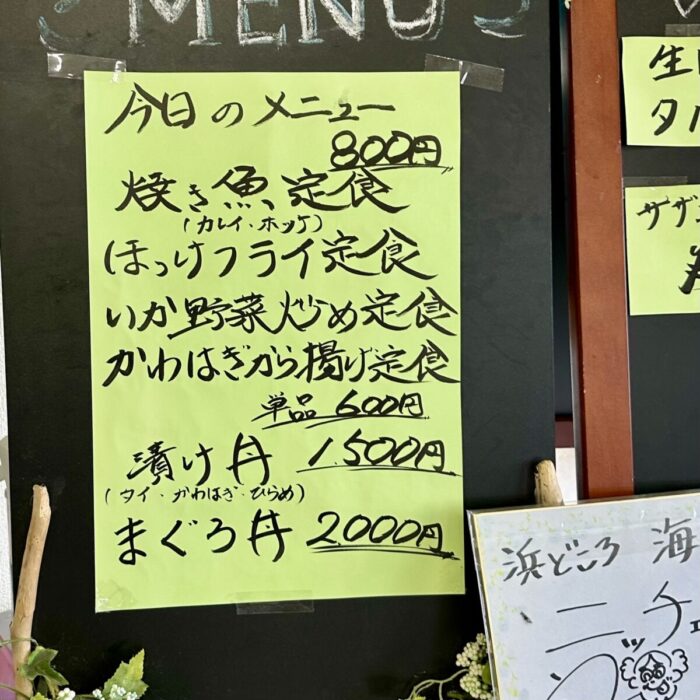 MENU
今日のメニュー
800円
焼き魚定食
(カレイ・ホッケ)
ほっけフライ定食
いか野菜炒め定食
かわはぎから揚げ定食
単品 600円
漬け丼 1,500円
(タイ・かわはぎ・ひらめ)
まぐろ丼 2000円
生
タル
サザ
浜どころ 海
ニッチェ